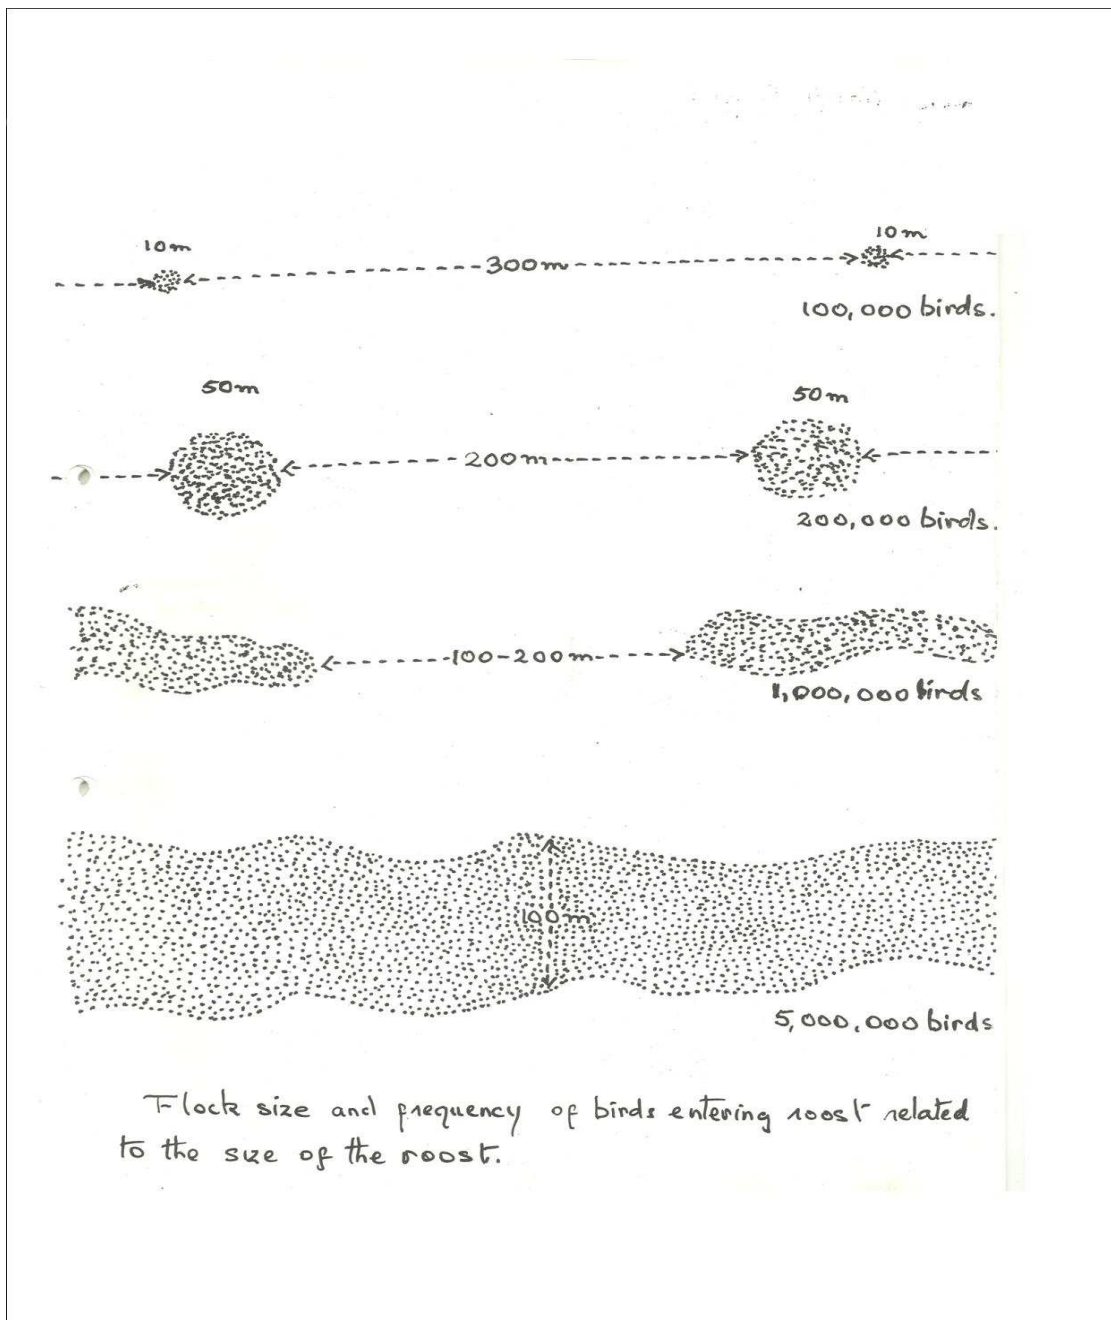 10m 10m
300m
100,000 birds.
50m 50m
200m
200,000 birds.
100-200m
1,000,000 birds
100m
5,000,000 birds
Flock size and frequency of birds entering roost related
to the size of the roost.